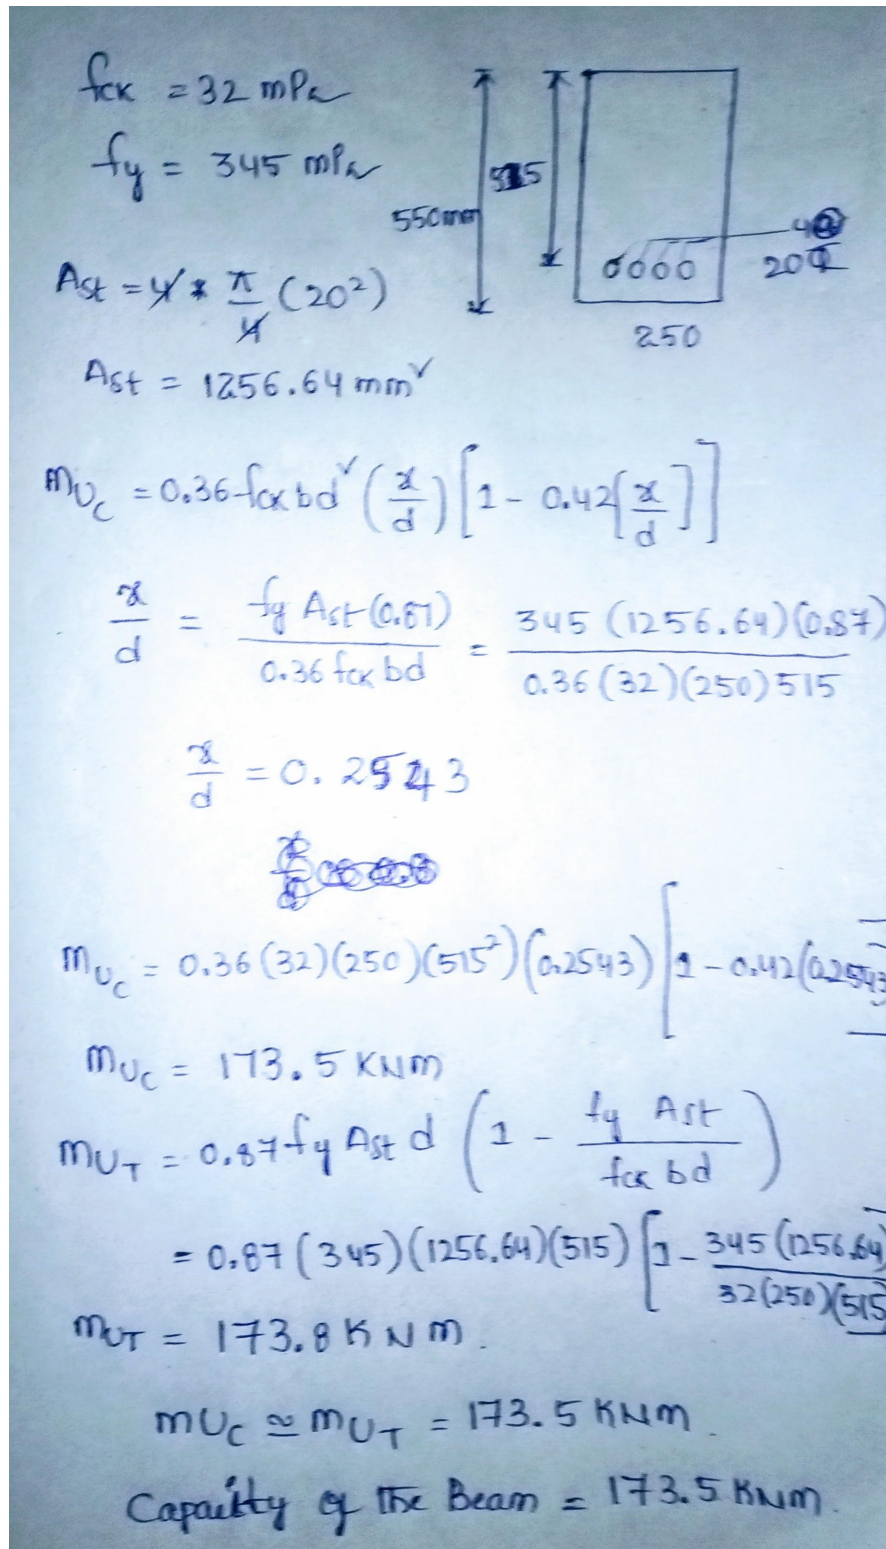 fck = 32 mPa
fy = 345 mPa
515
550mm
4
20Φ
250
Ast = 4 * π/4 (20²)
Ast = 1256.64 mm²
MUc = 0.36 fck bd² (x/d) [1 - 0.42[x/d]]
x/d = fy Ast (0.87) / 0.36 fck bd = 345 (1256.64)(0.87) / 0.36 (32)(250) 515
x/d = 0.2543
MUc = 0.36 (32)(250)(515²)(0.2543) [1 - 0.42(0.2543
MUc = 173.5 KNm
MUT = 0.87 fy Ast d (1 - fy Ast / fck bd)
= 0.87 (345)(1256.64)(515) [1 - 345 (1256.64) / 32(250)(515
MUT = 173.8 KNm.
MUc ≅ MUT = 173.5 KNm.
Capacity of the Beam = 173.5 KNm.